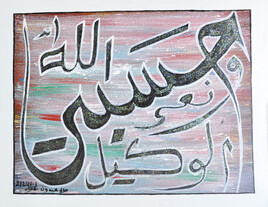 حسبي الله
ونعم
الوكيل